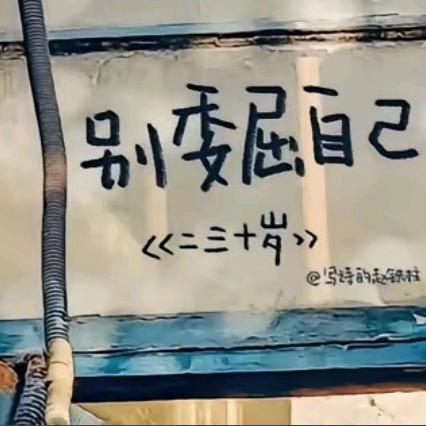 别委屈自己
<<二三十岁>>
@写诗的赵铁柱